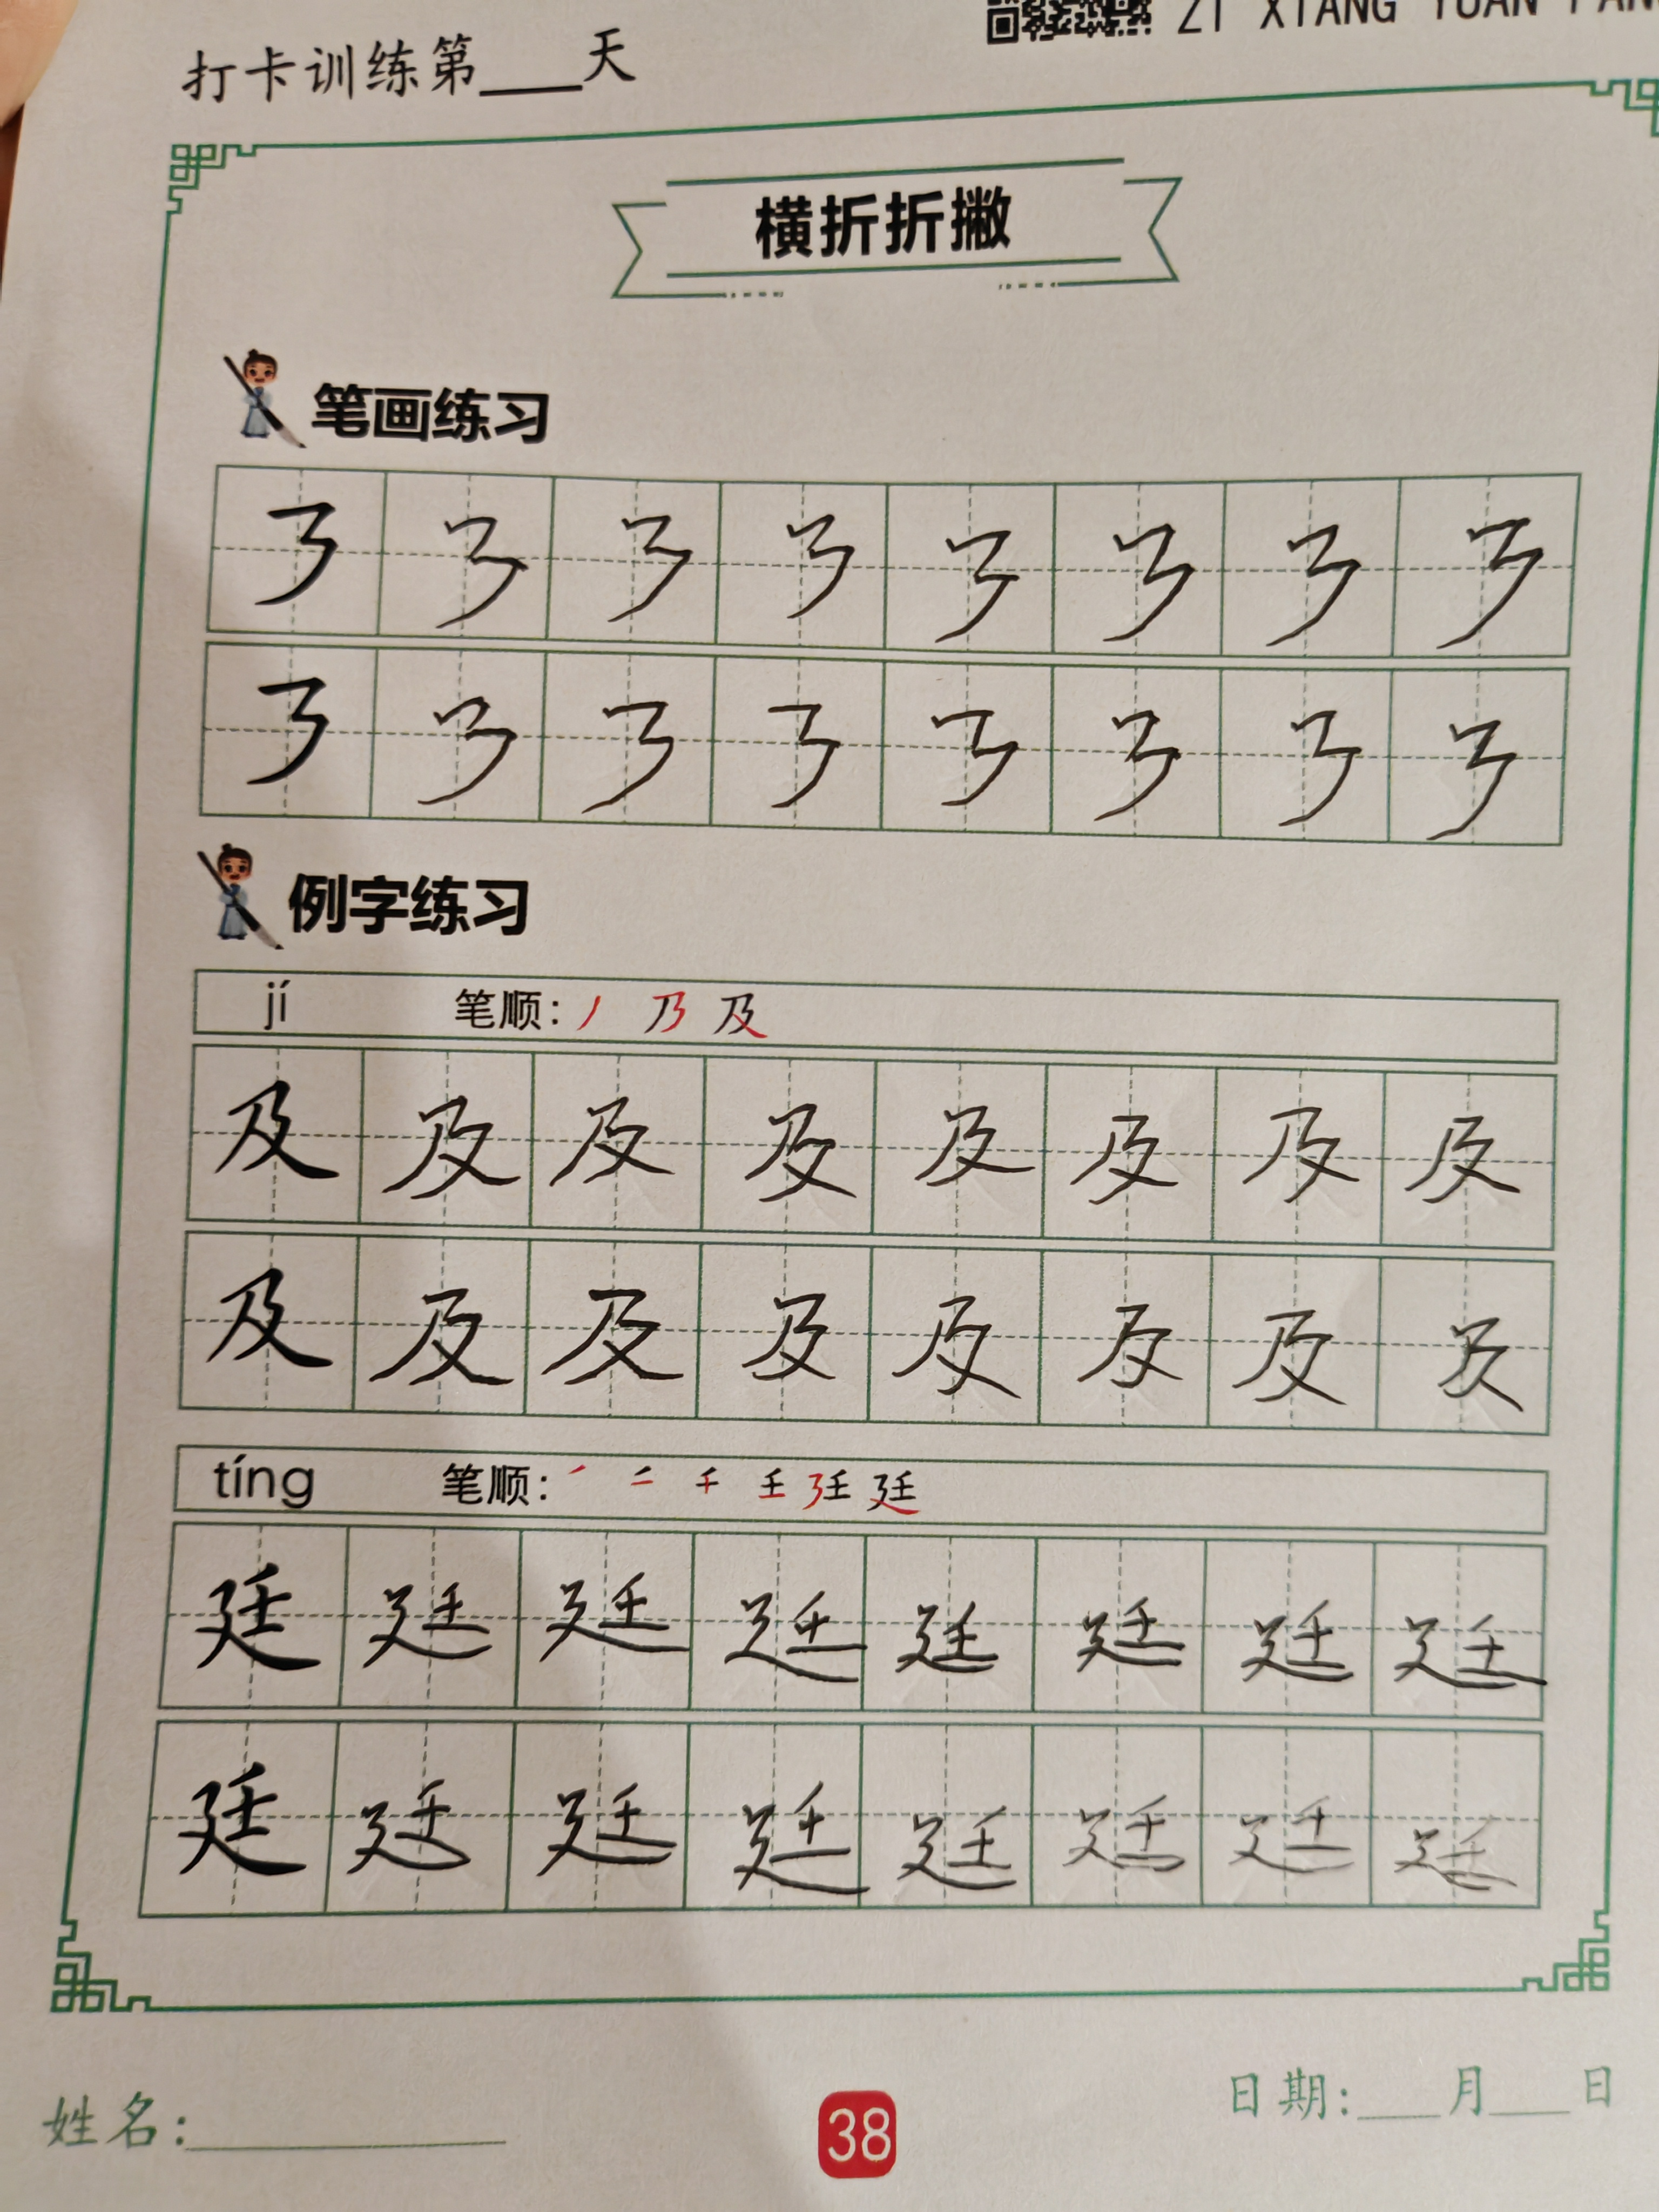 ZI XIANG YUAN
打卡训练第___天
横折折撇
笔画练习
㇋ ㇋ ㇋ ㇋ ㇋ ㇋ ㇋ ㇋
㇋ ㇋ ㇋ ㇋ ㇋ ㇋ ㇋ ㇋
例字练习
jí 笔顺：丿 乃 及
及 及 及 及 及 及 及 及
及 及 及 及 及 及 及 及
tíng 笔顺：
廷 廷 廷 廷 廷 廷 廷 廷
廷 廷 廷 廷 廷 廷 廷 廷
姓名：___ 38 日期：___月___日